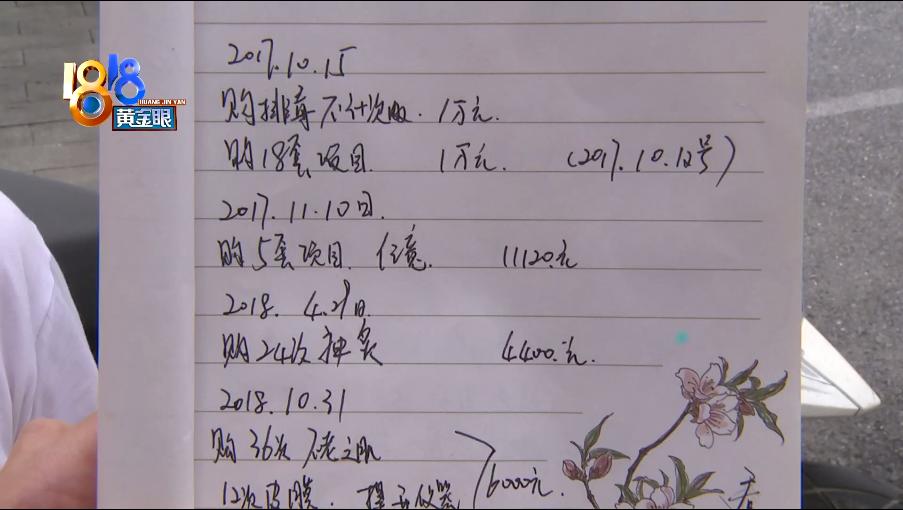 1818
HUANG JIN YAN
黄金眼
2017.10.15
购排毒不计次版. 1万元.
购18套项目 1万元. (2017.10.12号)
2017.11.10日.
购5套项目. 任意. 11120.元
2018. 4.29日
购24次神灸 4400.元.
2018.10.31
购36次不老之肌
12次皮膜. 仪器 16000元.